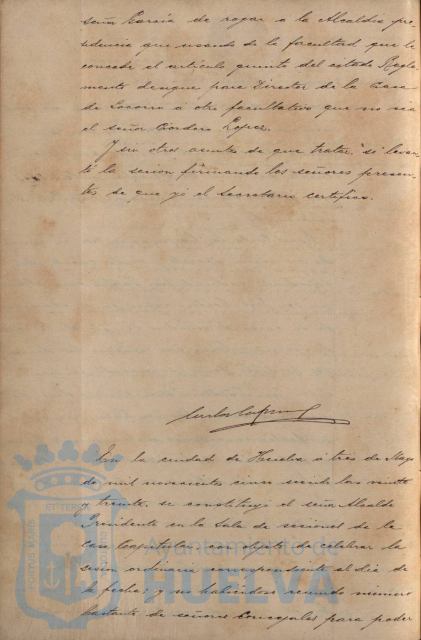 señor García de rogar a la Alcaldía pre-
sidencia que usando de la facultad que le
concede el artículo quinto del citado Regla-
mento designe para Director de la Casa
de Socorro a otro facultativo que no sea
el señor Cordero López.
Y sin otros asuntos de que tratar, se levan-
tó la sesión firmando los señores presen-
tes de que yo el Secretario certifico.
En la ciudad de Huelva a tres de Mayo
de mil novecientos cinco siendo las veinte
y treinta, se constituyó el señor Alcalde
Presidente en la Sala de sesiones de la
casa Capitular con objeto de celebrar la
sesión ordinaria correspondiente al día de
la fecha; y no habiéndose reunido número
bastante de señores Concejales para poder
PORTUS MARIS ET TERRAE
Ayuntamiento de
HUELVA